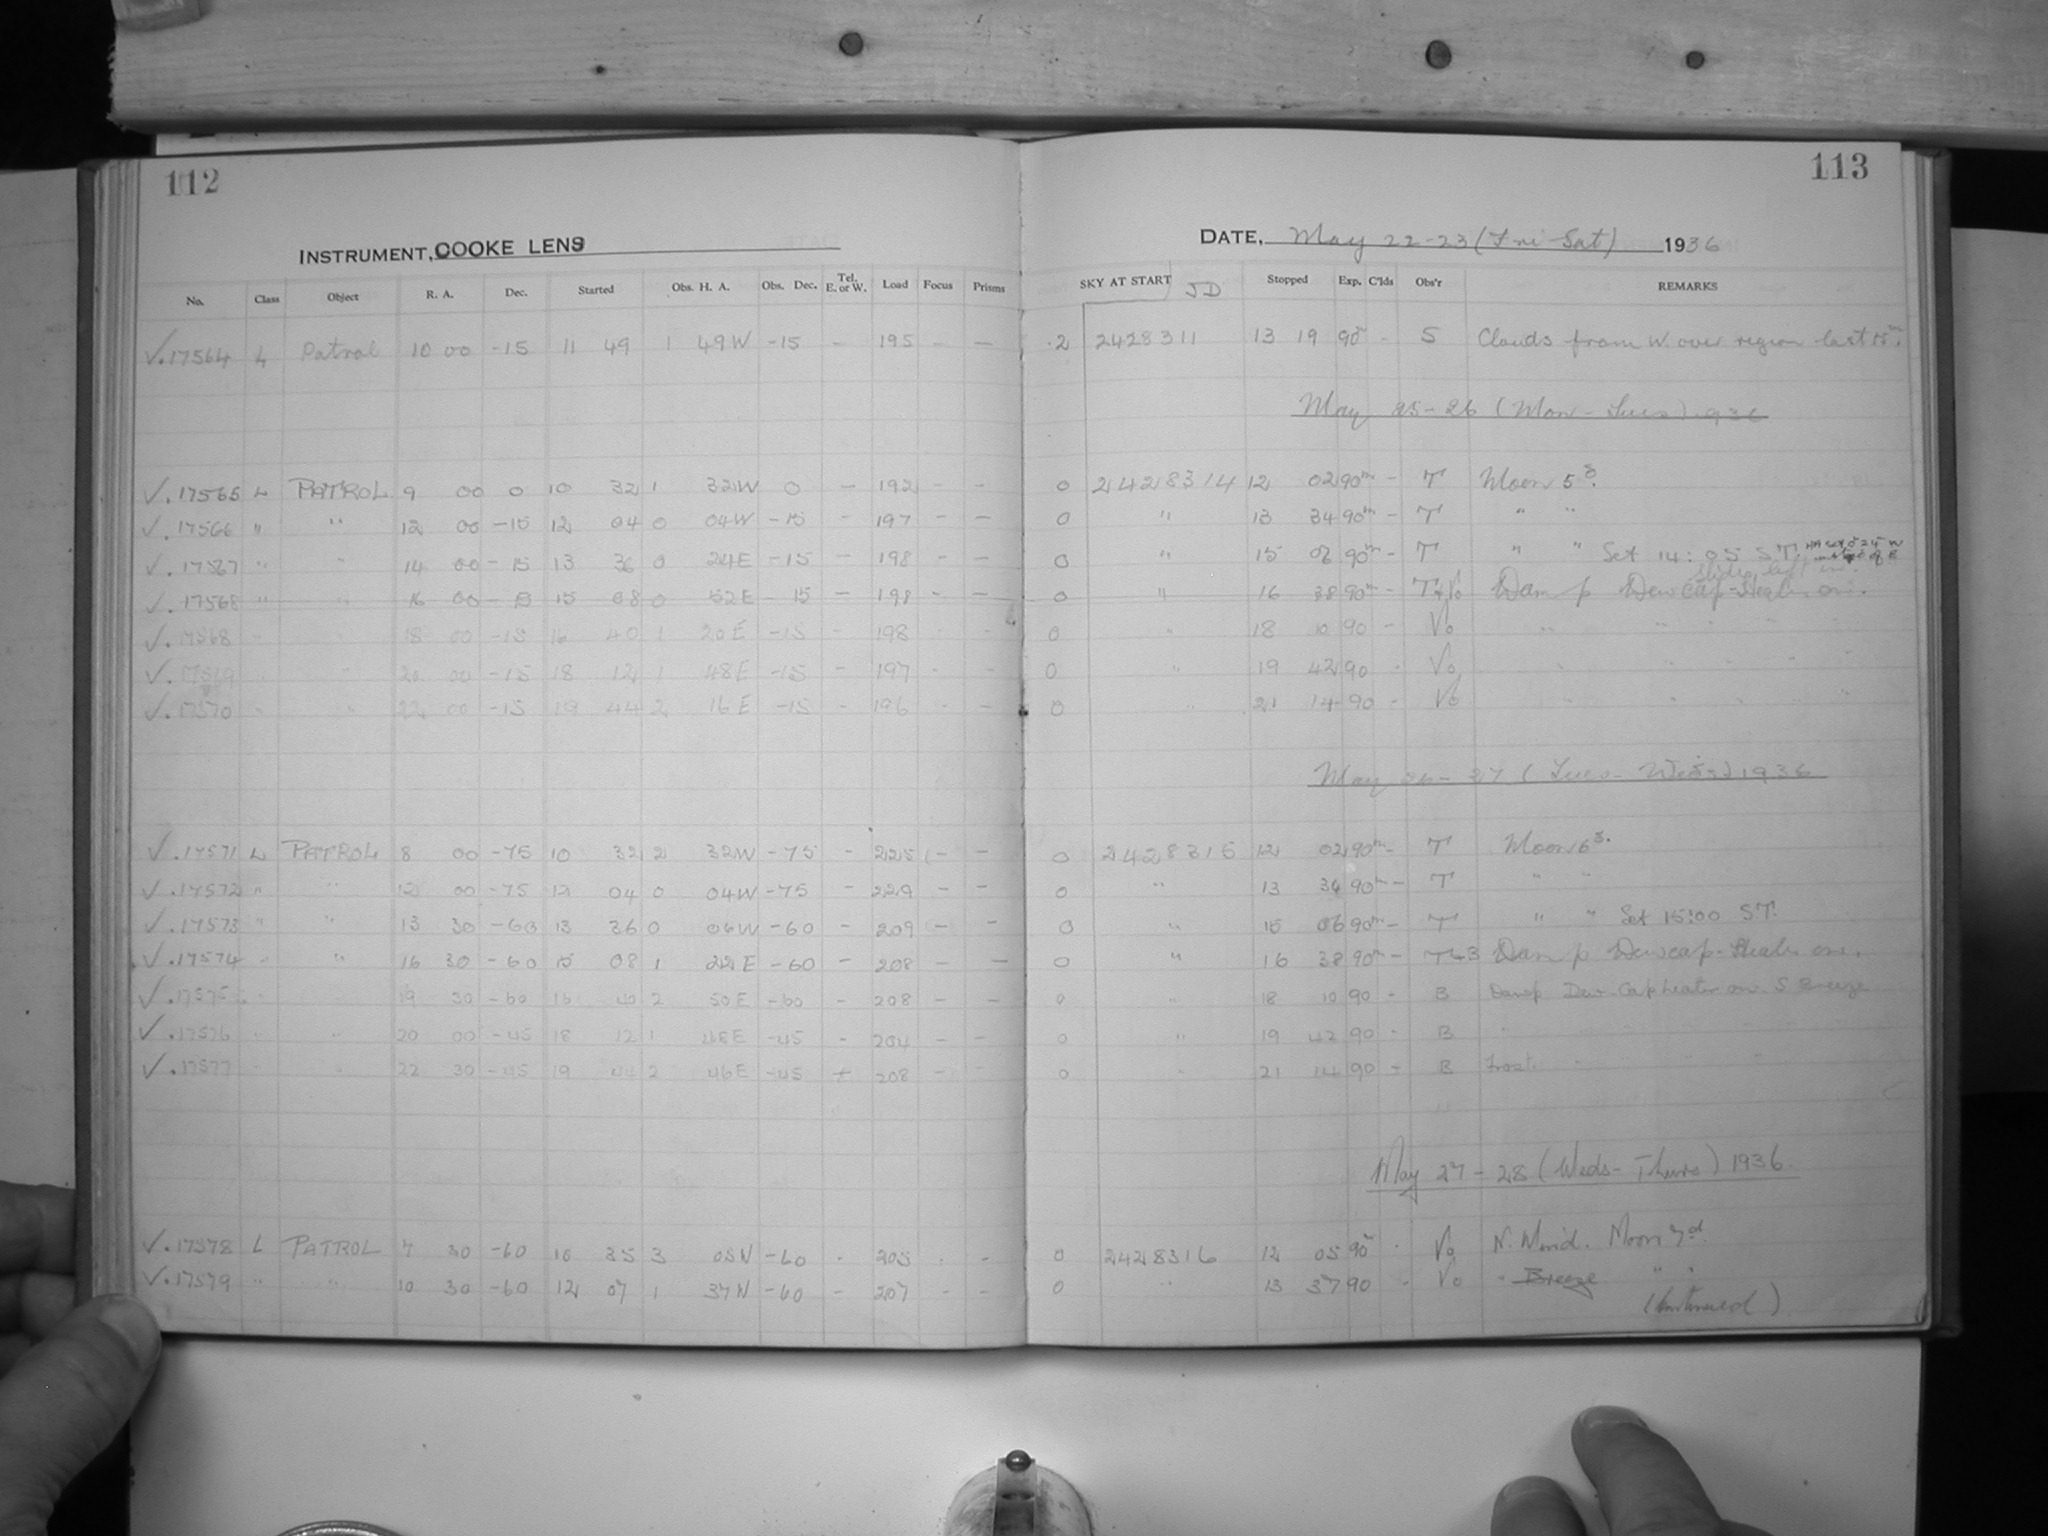 112
INSTRUMENT, COOKE LENS
No. Class Object R. A. Dec. Started Obs. H. A. Obs. Dec. Tel. E. or W. Load Focus Prisms
✓.17564 L Patrol 10 00 -15 11 49 1 49W -15 - 195 - -
✓.17565 L PATROL 9 00 0 10 32 1 32W 0 - 192 - -
✓.17566 " " 12 00 -15 12 04 0 04W -15 - 197 - -
✓.17567 " " 14 00 -15 13 36 0 24E -15 - 198 - -
✓.17568 " " 16 00 -15 15 08 0 52E -15 - 198 - -
✓.17568 " " 18 00 -15 16 40 1 20E -15 - 198 - -
✓.17569 " " 20 00 -15 18 12 1 48E -15 - 197 - -
✓.17570 " " 22 00 -15 19 44 2 16E -15 - 196 - -
✓.17571 L PATROL 8 00 -75 10 32 2 32W -75 - 225 - -
✓.17572 " " 12 00 -75 12 04 0 04W -75 - 229 - -
✓.17573 " " 13 30 -60 13 36 0 06W -60 - 209 - -
✓.17574 " " 16 30 -60 15 08 1 22E -60 - 208 - -
✓.17575 " " 19 30 -60 16 40 2 50E -60 - 208 - -
✓.17576 " " 20 00 -45 18 12 1 48E -45 - 204 - -
✓.17577 " " 22 30 -45 19 44 2 46E -45 - 208 - -
✓.17578 L PATROL 7 30 -60 10 35 3 05W -60 - 205 - -
✓.17579 " " 10 30 -60 12 07 1 37W -60 - 207 - -
113
DATE, May 22-23 (Fri-Sat) 1936
SKY AT START JD Stopped Exp. C'lds Obs'r REMARKS
.2 2428311 13 19 90m - S Clouds from W. over region last 15m.
May 25-26 (Mon-Tues) 1936
0 2428314 12 02 90m - T Moon 5d.
0 " 13 34 90m - T " "
0 " 15 06 90m - T " " Set 14:05 S.T.
slides left in.
0 " 16 38 90m - T+Vo Damp Dewcap-Heater on.
0 " 18 10 90 - Vo " " " " "
0 " 19 42 90 - Vo " " " " "
0 " 21 14 90 - Vo " " " " "
May 26-27 (Tues-Weds) 1936
0 2428315 12 02 90m - T Moon 6d.
0 " 13 34 90m - T " "
0 " 15 06 90m - T " " Set 15:00 ST.
0 " 16 38 90m - T+B Damp Dewcap-Heater on.
0 " 18 10 90 - B Damp Dew-Cap heater on. S Breeze
0 " 19 42 90 - B " " " " "
0 " 21 14 90 - B Frost " " " "
May 27-28 (Weds-Thurs) 1936.
0 2428316 12 05 90m - Vo N. Wind. Moon 7d.
0 " 13 37 90 - Vo " Breeze " "
(Continued)